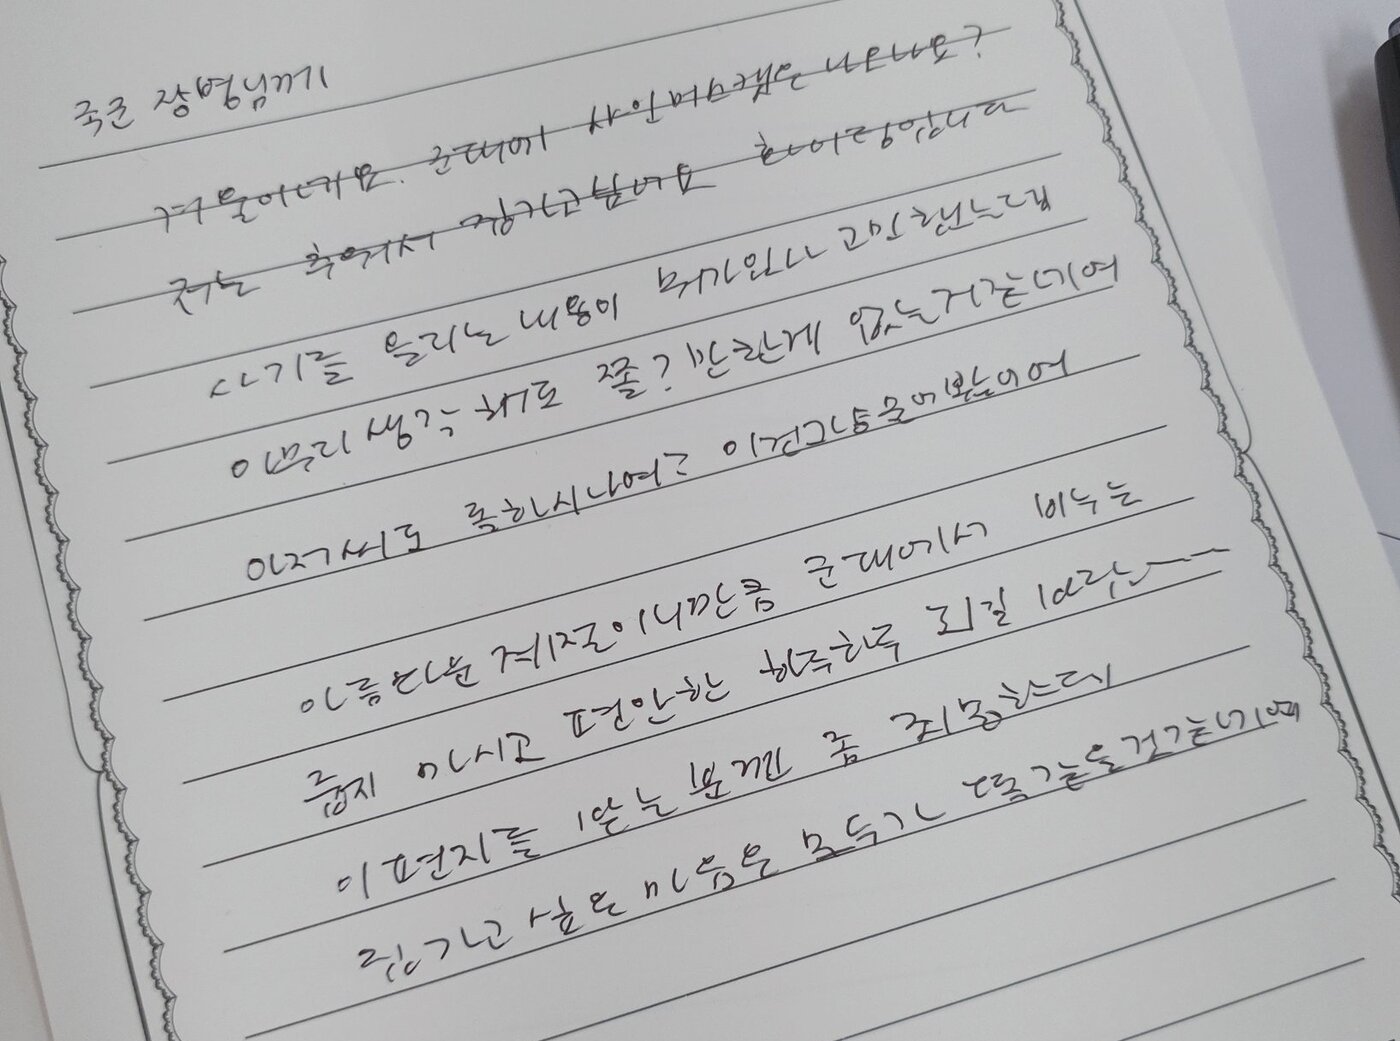 국군 장병님께
겨울이네요. 군대에 사인머겟은 나오나요?
저는 추워서 집가고싶네요 화이팅입니다
사기를 올리는 내용이 뭐가있나 고민했는데
아무리 생각해도 쫄?만한게 없는거같네여
아저씨도 롤하시나여? 이건그냥물어봤어여
아름다운 계절이니만큼 군대에서 비누는
줍지 마시고 편안한 하루하루 되길 바라
이 편지를 받는 분껜 좀 죄송한데
집가고 싶은 마음은 모두가 똑같을것같네여